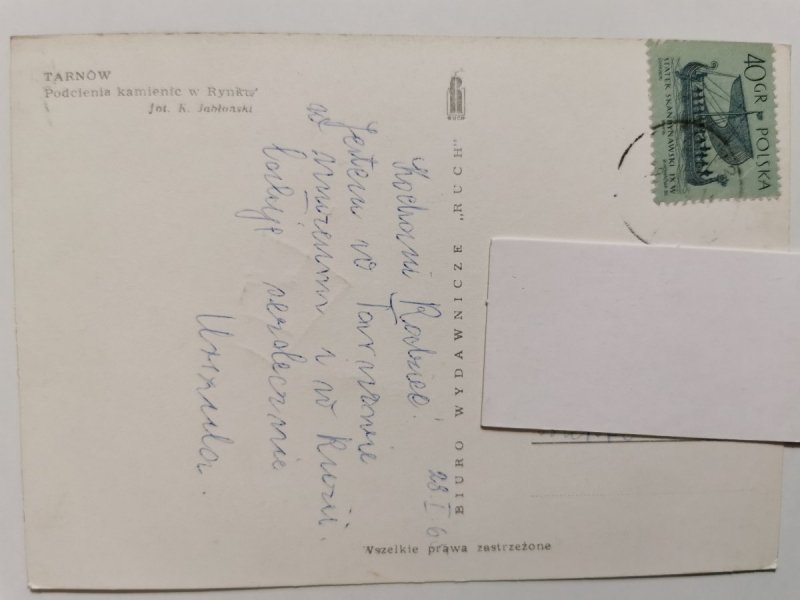 TARNÓW
Podcienia kamienic w Rynku
fot. K. Jabłoński
RUCH
BIURO WYDAWNICZE „RUCH"
Wszelkie prawa zastrzeżone
40 GR POLSKA
STATEK SKANDYNAWSKI IX W
28 I 6
Kochani Rodzice!
Jestem w Tarnowie
w muzeum i w Kurii.
Całuję serdecznie
Urszula.